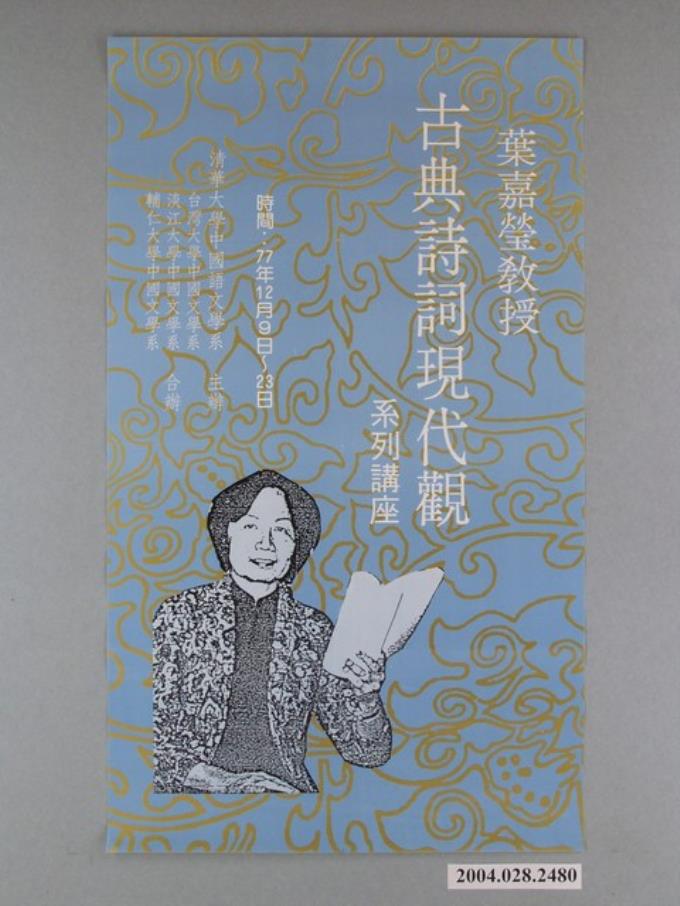 葉嘉瑩教授
古典詩詞現代觀
系列講座
時間：77年12月9日～23日
清華大學中國語文學系 主辦
台灣大學中國文學系
淡江大學中國文學系 合辦
輔仁大學中國文學系
2004.028.2480